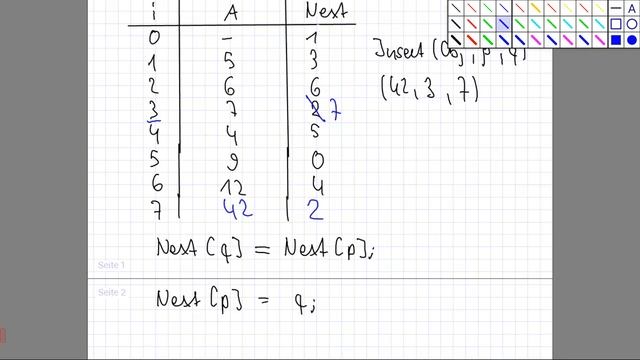 i A Next
0 - 1
1 5 3
2 6 6
3 7 2 7
4 4 5
5 9 0
6 12 4
7 42 2
Insert (Obj, p, q)
(42, 3, 7)
Next [q] = Next [p];
Seite 1
Seite 2
Next [p] = q;
A